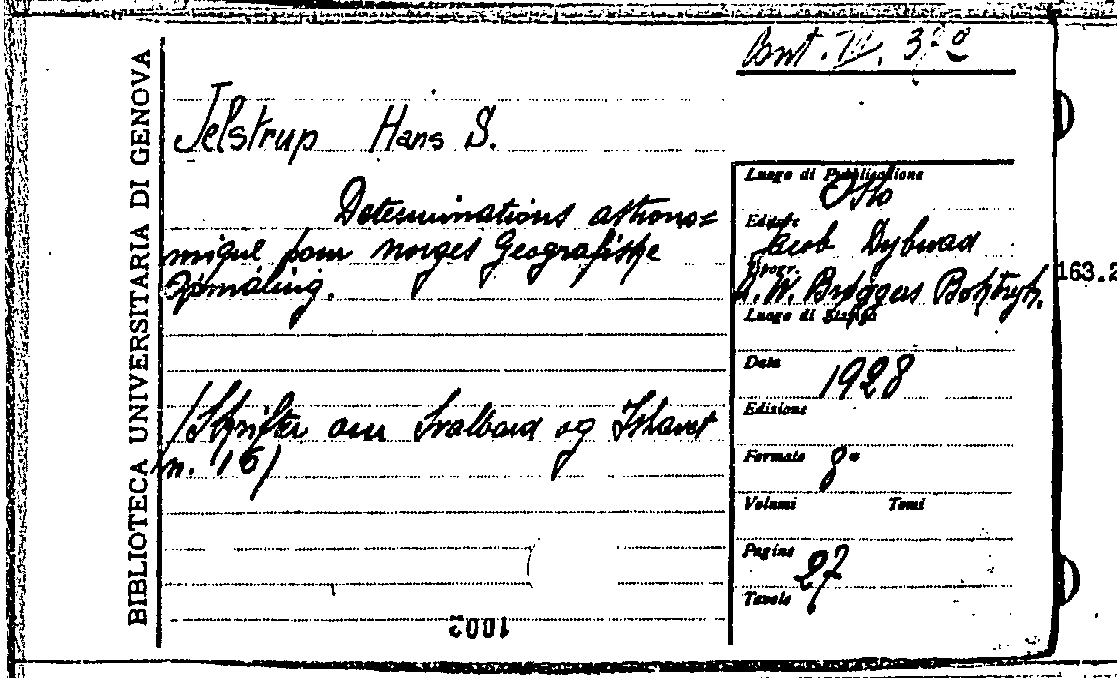 BIBLIOTECA UNIVERSITARIA DI GENOVA
Jelstrup Hans S.
Determinations astrono=
mique pour Norges Geografiske
Opmåling.
/Skrifter om Svalbard og Ishavet
n. 16/
1002
Luogo di Pubblicazione
Oslo
Editore
Jacob Dybwad
Tipogr.
A. W. Brøggers Boktryk.
Luogo di Stampa
Data
1928
Edizione
Formato 8°
Volumi Tomi
Pagine
27
Tavole
163.2